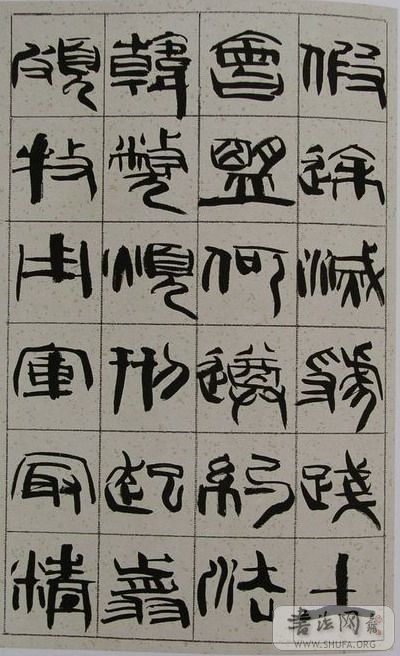 假途滅虢踐土
會盟何遵約法
韓弊煩刑起翦
頗牧用軍最精
書法网
WWW.SHUFA.ORG